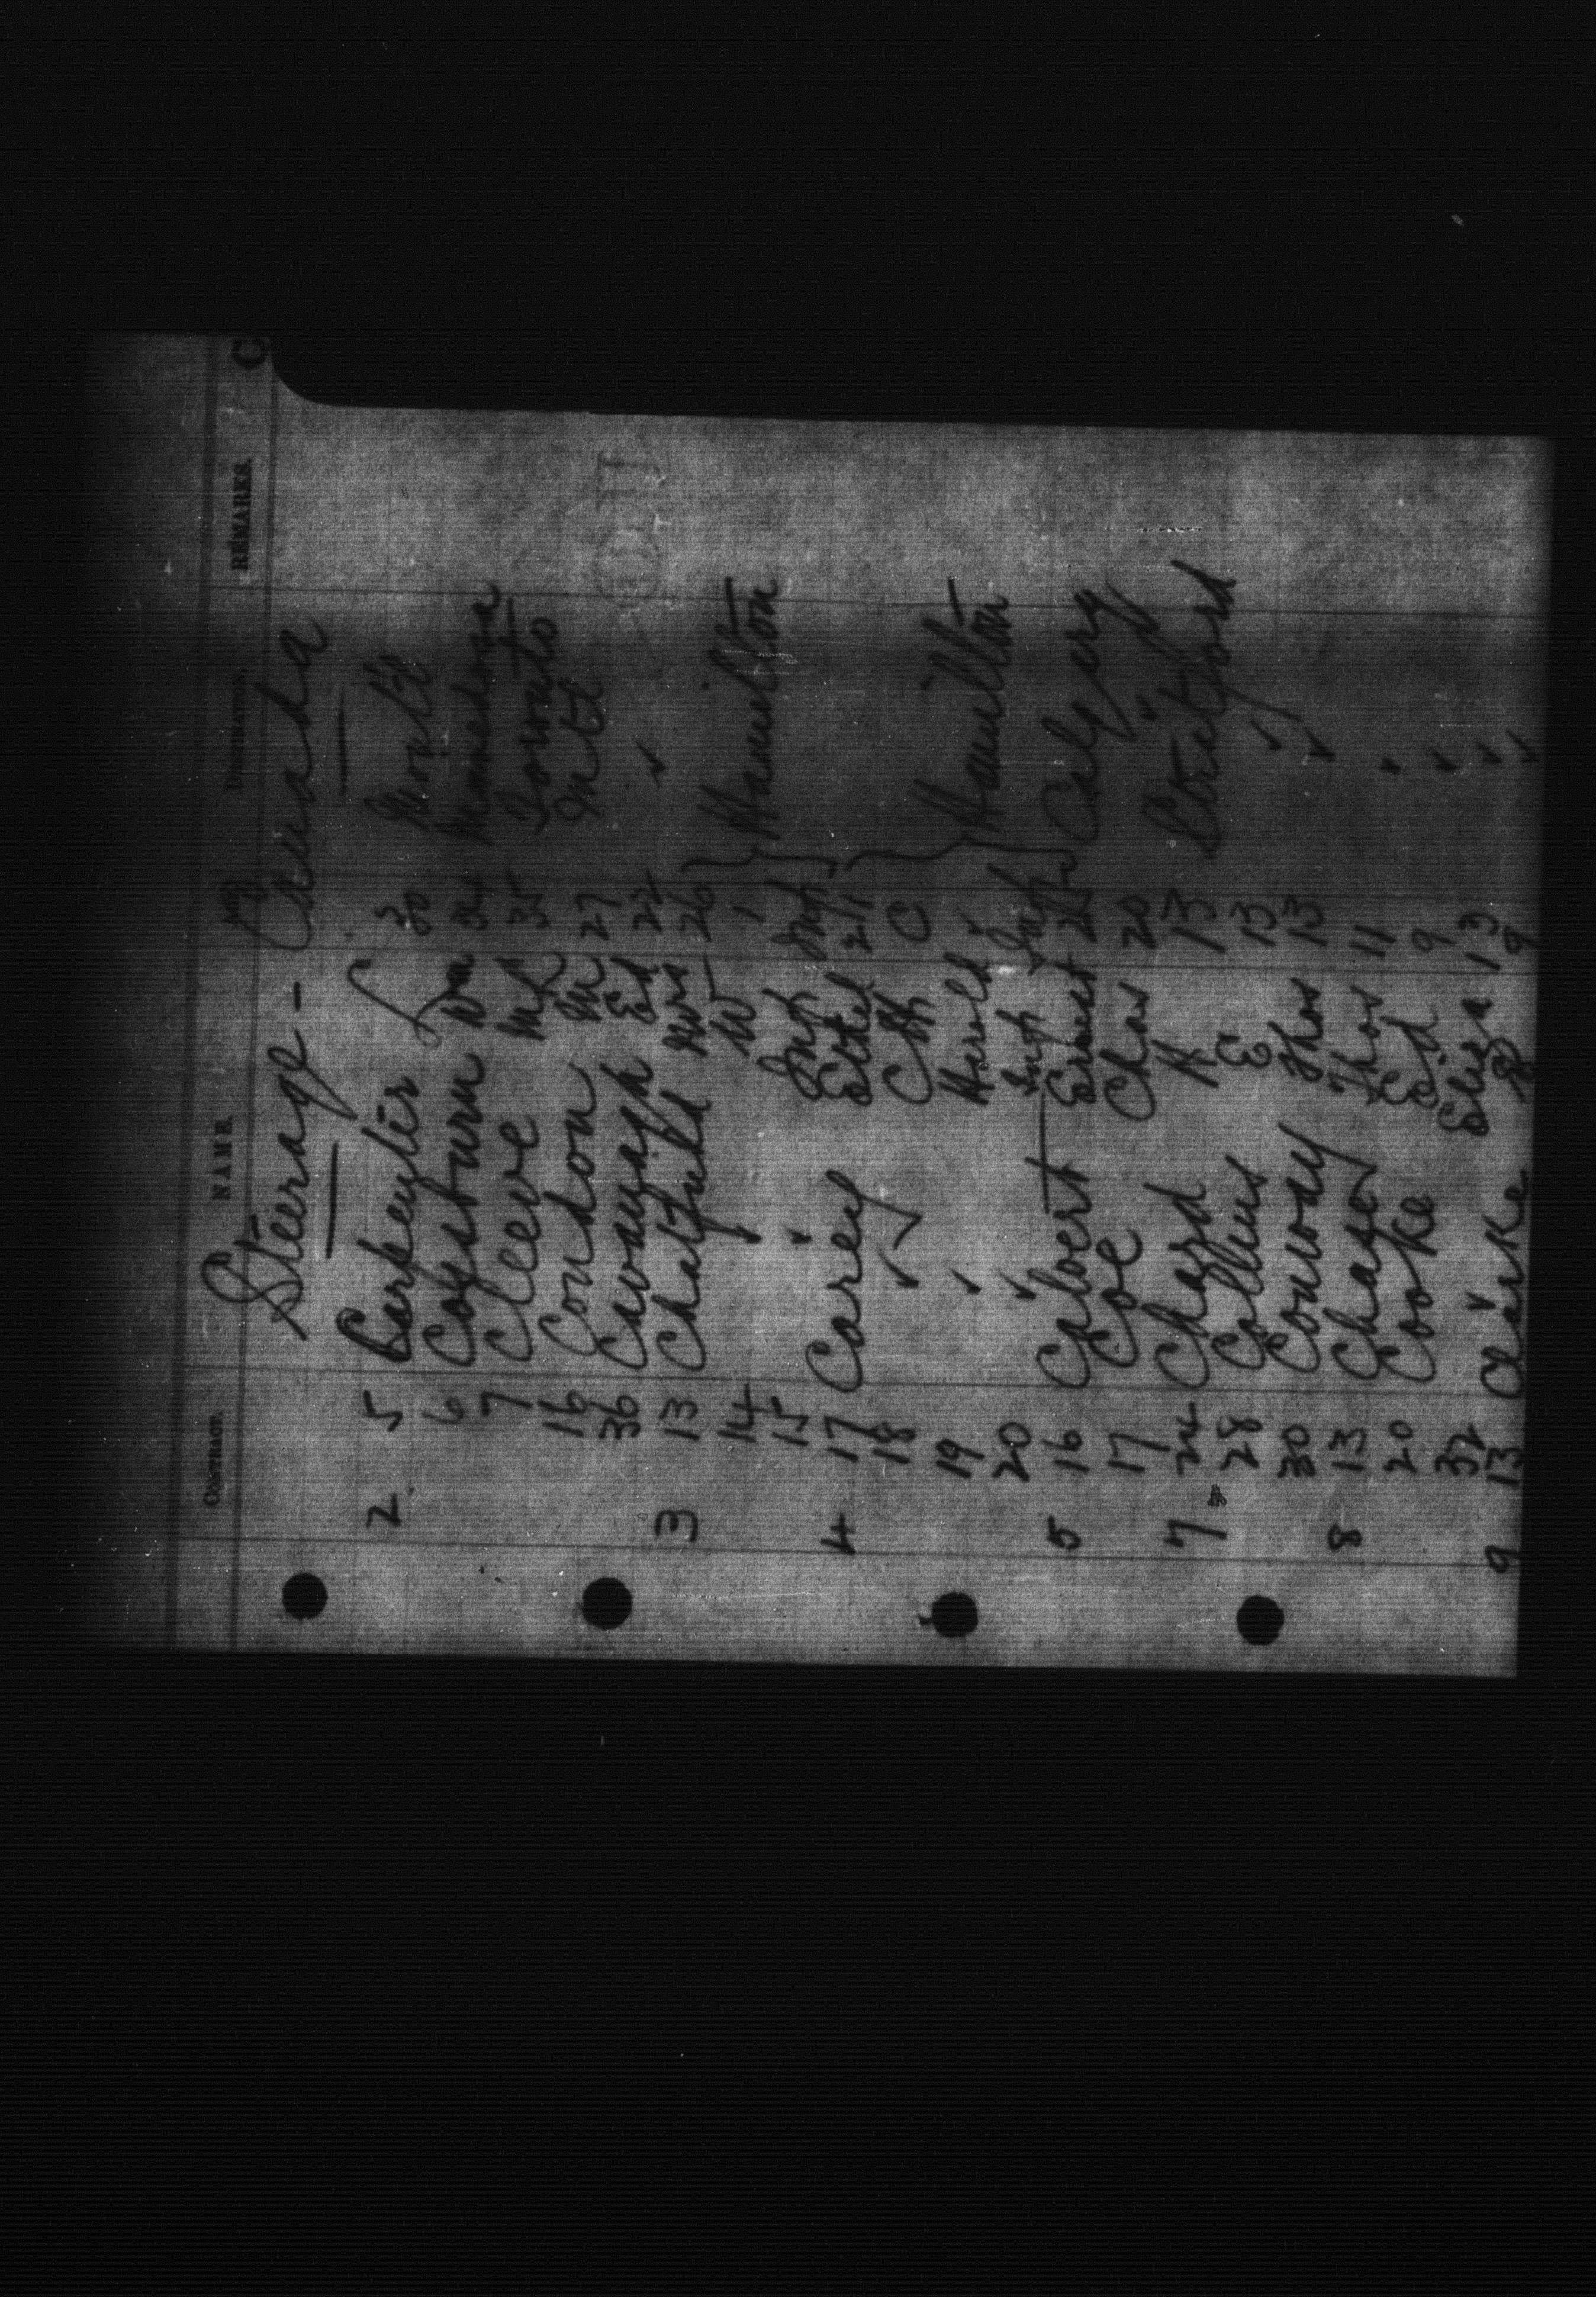 C
CONTRACT. NAME. Age DESTINATION. REMARKS.
Steerage - Canada
2 5 Carpenter 30 Montl
6 Colsturn Wm 32 Minnedosa
7 Cleeve 35 Toronto
16 Condon M 27 Mtl
36 Cavanagh Ed 22 ✓
3 13 Chatfield Mrs 26
14 ✓ W 1 Hamilton
15 ✓ Inf Inf
4 17 Carey Ethel 21
18 ✓ C
19 ✓ Harold Hamilton
20 ✓ Inf Inf
5 16 Calvert Ernest Calgary
17 Coe Chas 20 ✓
7 24 Chard H 13 Stratford
28 Collins E 13 ✓
30 Conway Thos 13 ✓
8 13 Chaser Thos 11 ✓
20 Cooke Ed 9 ✓
32 ✓ Eliza 13 ✓
9 13 Clarke 9 ✓